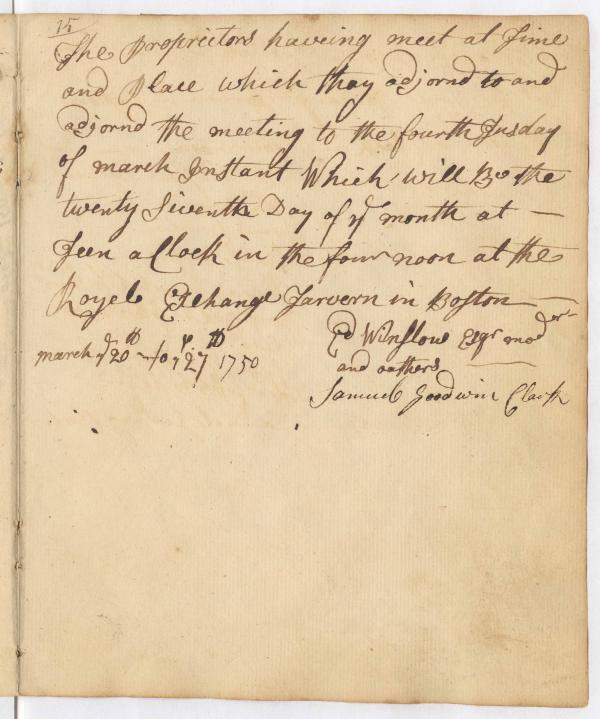 15
The proprietors haveing meet at Time
and place which thay adjornd to and
adjornd the meeting to the fourth Tusday
of march Instant Which will Be the
twenty Siventh Day of ye month at —
Teen a Clock in the four noon at the
Royel Exchange Tarvern in Boston —
Ed Winslow Esqr moder-
march ye 20th to ye 27th 1750
and oathers —
Samuel Goodwin Clark